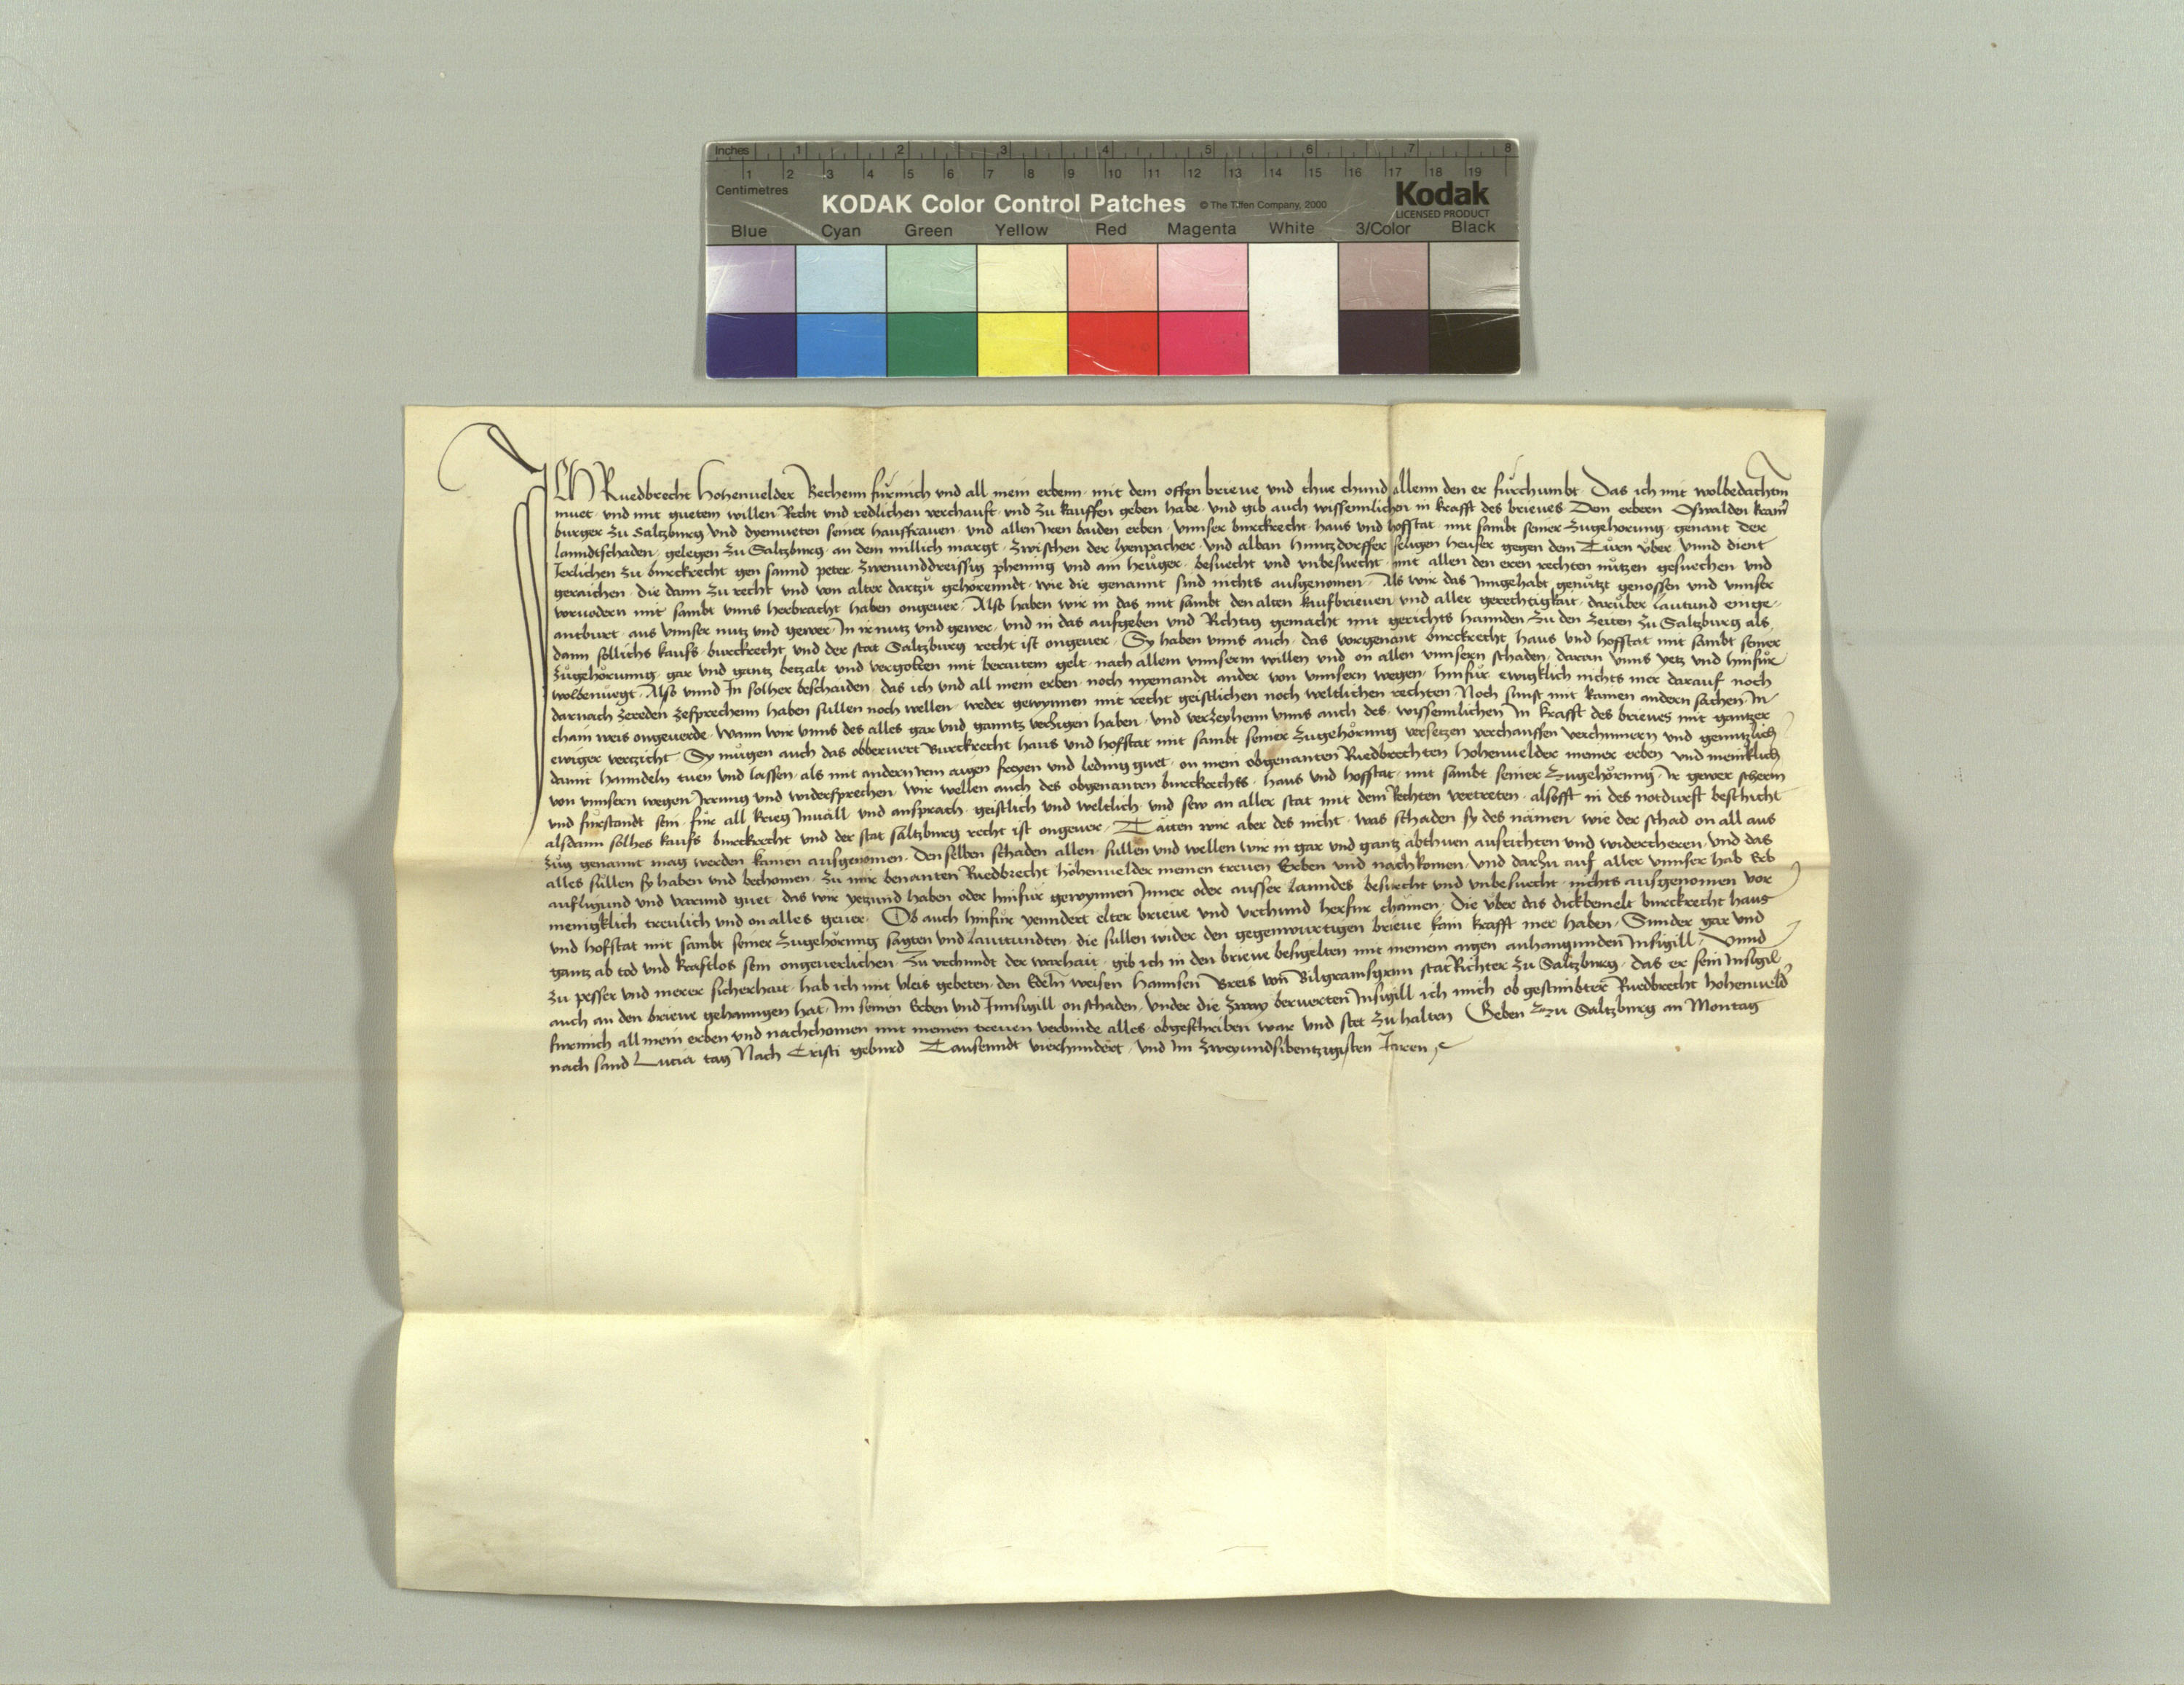 Inches 1 2 3 4 5 6 7 8
1 2 3 4 5 6 7 8 9 10 11 12 13 14 15 16 17 18 19
Centimetres
KODAK Color Control Patches © The Tiffen Company, 2000 Kodak
LICENSED PRODUCT
Blue Cyan Green Yellow Red Magenta White 3/Color Black
ICH Ruedbrecht Hohenuelder Bechenn für mich und all mein erbenn mit dem offen brieue und thue chund allenn den er fürchumbt Das ich mit wolbedachtm
muet und mit guetem willen Recht und redlichen verchauft und zu kauffen geben habe und gib auch wissennlichen in krafft des brieues Den erbern Oswalden kram
burger zu Saltzburg und dyemueten seiner hausfrauen und allen Iren baiden erben Unnser burckrecht haus und hofstat mit sambt seiner zugehorung genant Der
lanndtschaden gelegen zu Saltzburg an dem millich margt zwischen der lyenpacher und alban Huntzdorffer seligen heuser gegen dem Turn über Unnd dient
Ierlichen zu burckrecht gen sannd peter zwenunddreissig phening und ain heuger besuecht und unbesuecht mit allen den eren rechten nützen gesuechen und
geraichen die dann zu recht und von alter dartzu gehörenndt wie die genannt sind nichts ausgenomen Als wir das Inngehabt genützt genossen und unnser
voruodern mit sambt unns herbracht haben ongeuer Also haben wir in das mit sambt den alten kaufbrieuen und aller gerechtigkait darüber lautund einge
antburt aus unnser nutz und gewer In ir nutz und gewer und in das aufgeben und Richtig gemacht mit gerichts hannden zu den zeiten zu Saltzburg als
dann sollichs kaufs burckrecht und der stat Saltzburg recht ist ongeuer Sy haben unns auch das vorgenant burckrecht haus und hofstat mit sambt seiner
zugehorunng gar und gantz betzalt und vergolten mit beraitem gelt nach allem unnserm willen und on allen unnsern schaden daran unns yetz und hinfür
wolbenüegt Also unnd In solher beschaiden das ich und all mein erben noch nyemandt ander von unnsern wegen hinfür ewigklich nichts mer darauf noch
darnach zereden zesprechenn haben sullen noch wellen weder gewynnen mit recht geistlichen noch weltlichen rechten Noch sunst mit kainen andern sachen In
chain weis ongeuerde Wann wir unns des alles gar und ganntz verzigen haben und verzeyhenn unns auch des wissennlichen In krafft des brieues mit gantzer
ewiger vertzicht Sy mugen auch das obberuert Burckrecht haus und hofstat mit sambt seiner zugehörung versetzen verchauffen verchumern und genntzlich
damit hanndeln tuen und lassen als mit andern irem aigen freyen und leding guet on mein obgenanten Ruedbrechten Hohenuelder meiner erben und meniklich
von unnsern wegen Irrung und widersprechen Wir wellen auch des obgenanten burckrechts haus und hofstat mit sambt seiner zugehörung Ir gewer scherm
und fürstandt sein für all krieg Inuäll und ansprach geistlich und weltlich und sew an aller stat mit dem Rechten vertreten alsofft in des notdurft beschicht
alsdann solhes kaufs burckrecht und der stat saltzburg recht ist ongeuer Täten wir aber des nicht was schaden sy des nämen wie der schad on all aus
züg genannt mag werden kainen ausgenomen Denselben schaden allen sullen und wellen wir in gar und gantz abthuen ausrichten und widercheren Und das
alles sullen sy haben und bechomen zu mir benanten Ruedbrecht höhenuelder meinen treuen Erben und nachkomen Und darzu auf aller unnser hab Erb
aufligund und varund guet das wir yetzund haben oder hinfür gewynnen Inner oder ausser lanndes besuecht und unbesuecht nichts ausgenomen vor
menigklich treulich und on alles geuer Ob auch hinfür yenndert elter brieue und Urchund herfur chämen Die über das dickbemelt burckrecht haus
und hofstat mit sambt seiner zugehörung sagten und lauttundten die sullen wider den gegenwurtigen brieue kain krafft mer haben Sunder gar und
gantz ab tod und kraftlos sein ongeuerlichen Zu urchundt der warhait gib ich in den brieue besigelten mit meinem aigen anhangunden Insigill Unnd
zu pesser und merer sicherhait hab ich mit vleis gebeten den Edeln weisen Hannsen Breis von Bilgramsgrun statRichter zu Saltzburg das er sein Insigil
auch an den brieue gehanngen hat Im seinen Erben und Innsigill on schaden Under die zway beruerten Insigill ich mich obgestimbter Ruedbrecht hohenueld
fur mich all mein erben und nachchomen mit meinen treuen verbinde alles obgeschriben war und stet zu halten Geben zu Saltzburg an Montag
nach sand Lucia tag Nach Cristi geburd Tausenndt vierhundert und Im zweyundsibentzigisten Jaren